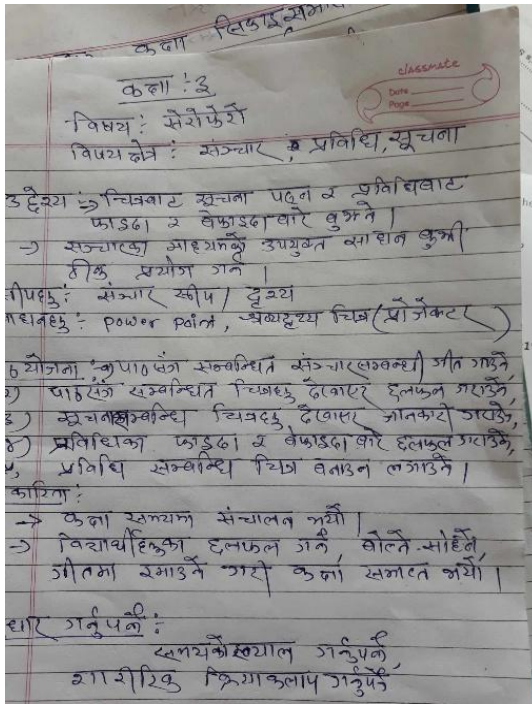 कक्षा लिकाइ
classmate
Date
Page
कक्षा : ३
विषय : सेरोफेरो
विषय क्षेत्र : सञ्चार, प्रविधि, सूचना
उद्देश्य :→ चित्रबाट सूचना पढ्न र प्रविधिबाट
फाइदा र बेफाइदा बारे बुझ्ने ।
→ सञ्चारका माध्यमको उपयुक्त साधन बुझी
ठीक प्रयोग गर्न ।
सीपहरु : संचार सीप / दृश्य
साधनहरु : power point, श्रव्यदृश्य चित्र (प्रोजेकटर)
योजना : पाठसंग सम्बन्धित संञ्चार सम्बन्धी गीत गाउने
२) पाठसंग सम्बन्धित चित्रहरु देखाएर छलफल गराउने,
३) सूचना सम्बन्धि चित्रहरु देखाएर जानकारी गराउने,
४) प्रविधिका फाइदा र बेफाइदा बारे छलफल गराउने,
५, प्रविधि सम्बन्धि चित्र बनाउन लगाउने ।
कारिता :
→ कक्षा समयमा संचालन भयो ।
→ विद्यार्थीहरुका छलफल गर्ने, बोल्ने सोध्ने,
गीतमा रमाउने गरी कक्षा समाप्त भयो ।
धार गर्नुपर्ने :
समयको ख्याल गर्नुपर्ने,
शारीरिक क्रियाकलाप गर्नुपर्ने